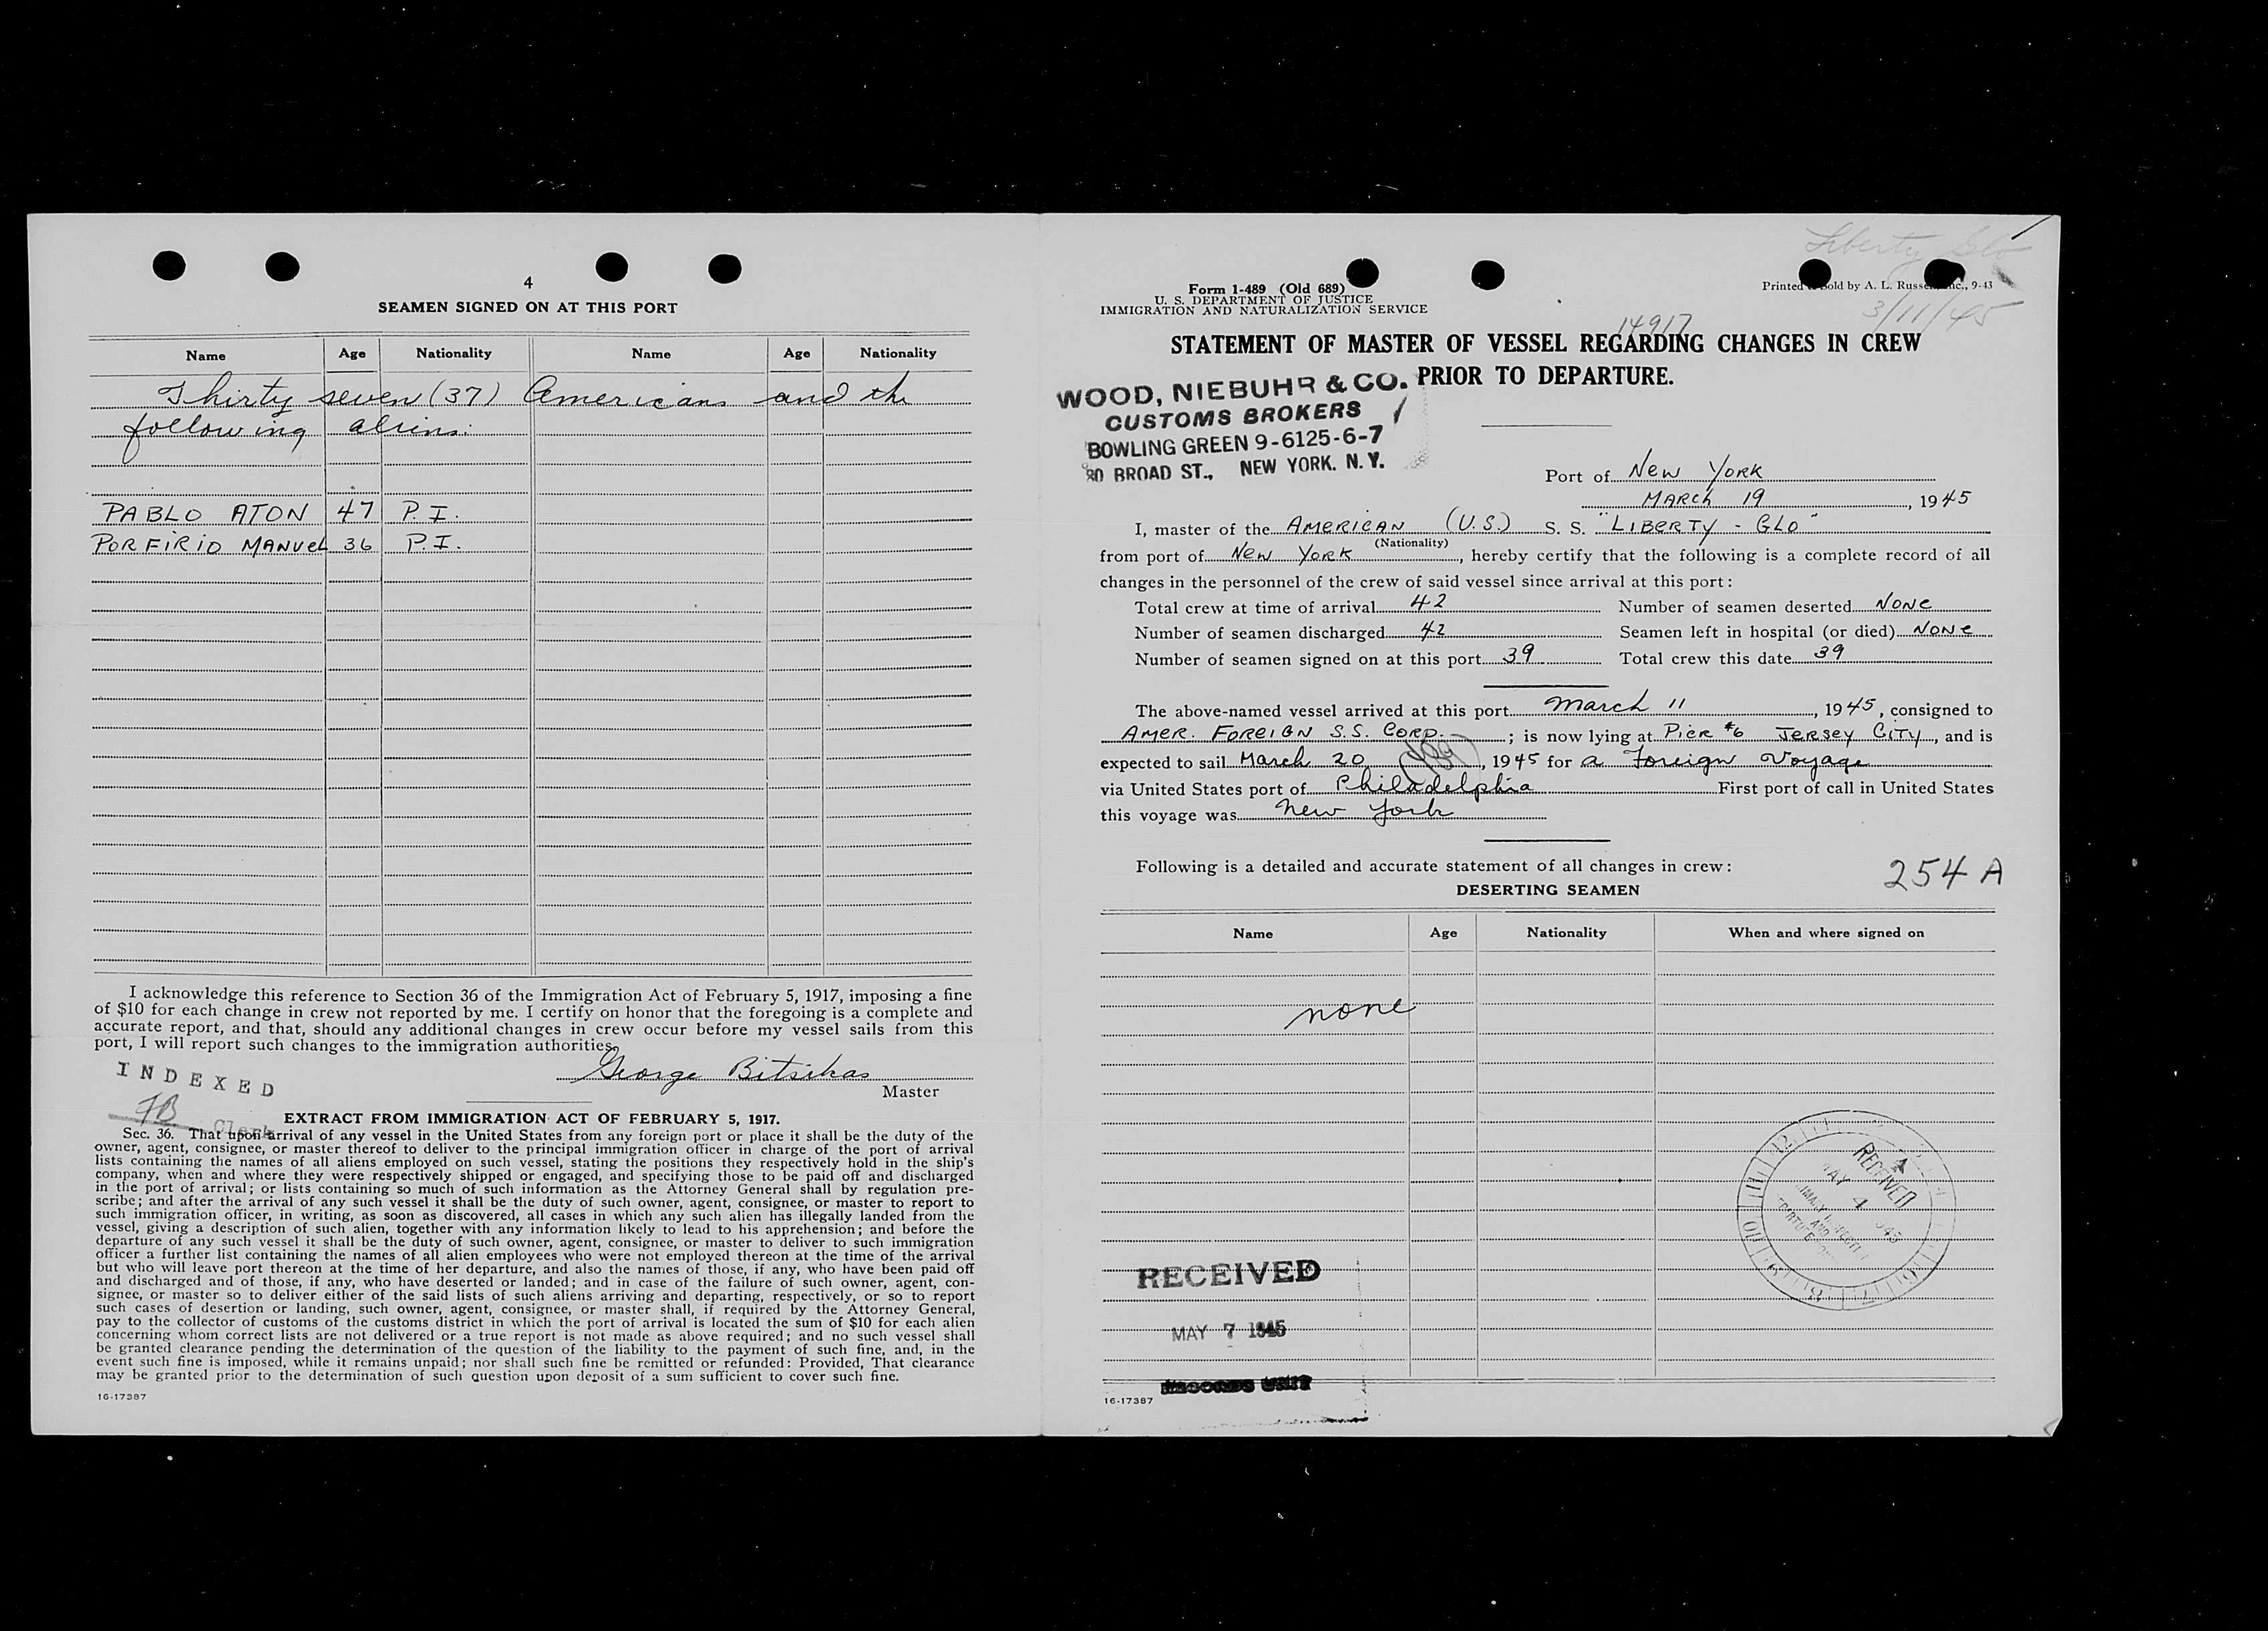 4
SEAMEN SIGNED ON AT THIS PORT
Name Age Nationality Name Age Nationality
Thirty seven (37) Americans and the
following aliens:
PABLO ATON 47 P.I.
PORFIRIO MANUEL 36 P.I.
I acknowledge this reference to Section 36 of the Immigration Act of February 5, 1917, imposing a fine
of $10 for each change in crew not reported by me. I certify on honor that the foregoing is a complete and
accurate report, and that, should any additional changes in crew occur before my vessel sails from this
port, I will report such changes to the immigration authorities.
George Bitsikas
Master
INDEXED
JB Clerk
EXTRACT FROM IMMIGRATION ACT OF FEBRUARY 5, 1917.
Sec. 36. That upon arrival of any vessel in the United States from any foreign port or place it shall be the duty of the
owner, agent, consignee, or master thereof to deliver to the principal immigration officer in charge of the port of arrival
lists containing the names of all aliens employed on such vessel, stating the positions they respectively hold in the ship's
company, when and where they were respectively shipped or engaged, and specifying those to be paid off and discharged
in the port of arrival; or lists containing so much of such information as the Attorney General shall by regulation pre-
scribe; and after the arrival of any such vessel it shall be the duty of such owner, agent, consignee, or master to report to
such immigration officer, in writing, as soon as discovered, all cases in which any such alien has illegally landed from the
vessel, giving a description of such alien, together with any information likely to lead to his apprehension; and before the
departure of any such vessel it shall be the duty of such owner, agent, consignee, or master to deliver to such immigration
officer a further list containing the names of all alien employees who were not employed thereon at the time of the arrival
but who will leave port thereon at the time of her departure, and also the names of those, if any, who have been paid off
and discharged and of those, if any, who have deserted or landed; and in case of the failure of such owner, agent, con-
signee, or master so to deliver either of the said lists of such aliens arriving and departing, respectively, or so to report
such cases of desertion or landing, such owner, agent, consignee, or master shall, if required by the Attorney General,
pay to the collector of customs of the customs district in which the port of arrival is located the sum of $10 for each alien
concerning whom correct lists are not delivered or a true report is not made as above required; and no such vessel shall
be granted clearance pending the determination of the question of the liability to the payment of such fine, and, in the
event such fine is imposed, while it remains unpaid; nor shall such fine be remitted or refunded: Provided, That clearance
may be granted prior to the determination of such question upon deposit of a sum sufficient to cover such fine.
16-17387
Liberty Glo
Form 1-489 (Old 689)
U. S. DEPARTMENT OF JUSTICE
IMMIGRATION AND NATURALIZATION SERVICE
Printed & Sold by A. L. Russell, Inc., 9-43
3/11/45
14917
STATEMENT OF MASTER OF VESSEL REGARDING CHANGES IN CREW
PRIOR TO DEPARTURE.
WOOD, NIEBUHR & CO.
CUSTOMS BROKERS
BOWLING GREEN 9-6125-6-7
80 BROAD ST., NEW YORK. N. Y.
Port of New York
MARCH 19, 1945
I, master of the AMERICAN (U.S.) S. S. "LIBERTY - GLO"
(Nationality)
from port of New York, hereby certify that the following is a complete record of all
changes in the personnel of the crew of said vessel since arrival at this port:
Total crew at time of arrival 42 Number of seamen deserted NONE
Number of seamen discharged 42 Seamen left in hospital (or died) NONE
Number of seamen signed on at this port 39 Total crew this date 39
The above-named vessel arrived at this port March 11, 1945, consigned to
AMER. FOREIGN S.S. CORP.; is now lying at PIER #6 JERSEY CITY, and is
expected to sail March 20, 1945 for a Foreign Voyage
via United States port of Philadelphia First port of call in United States
this voyage was New York
Following is a detailed and accurate statement of all changes in crew:
254 A
DESERTING SEAMEN
Name Age Nationality When and where signed on
none
RECEIVED
MAY 4
RECEIVED
MAY 7 1945
RECORDS UNIT
16-17387